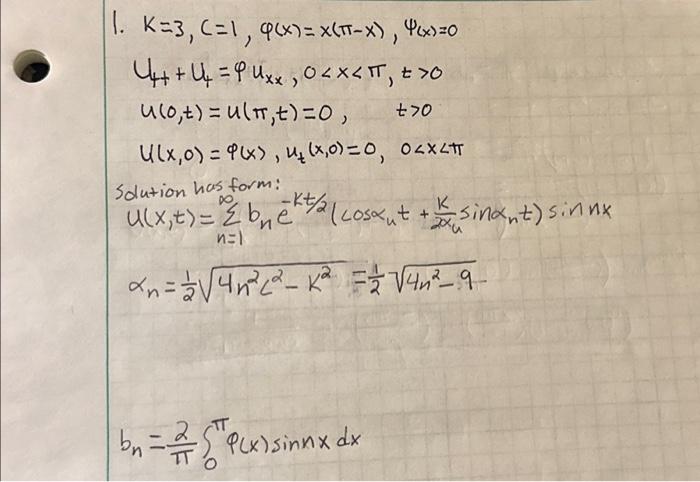 1. K=3, C=1, φ(x)=x(π-x), Ψ(x)=0
U_tt + U_t = φ u_xx, 0<x<π, t>0
u(0,t)=u(π,t)=0, t>0
u(x,0)=φ(x), u_t(x,0)=0, 0<x<π
Solution has form:
u(x,t)= ∑_{n=1}^{∞} b_n e^{-Kt/2} (cosα_n t + K/(2α_n) sinα_n t) sin nx
α_n = 1/2 √(4n²c² - K²) = 1/2 √(4n² - 9)
b_n = 2/π ∫_0^π φ(x) sin nx dx